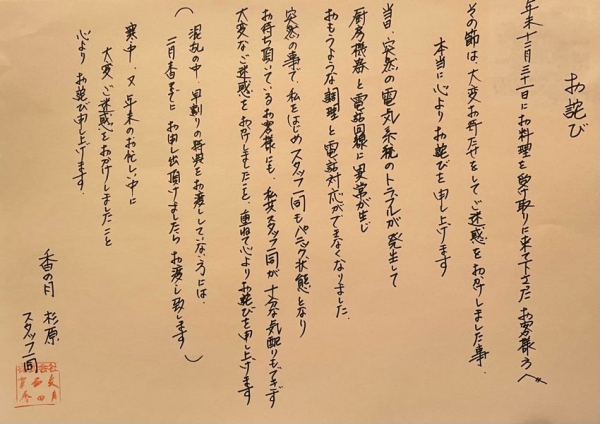 お詫び
年末十二月三十一日にお料理を受け取りに来て下さったお客様方へ
その節は、大変お待たせをしてご迷惑をお掛けしました事、
本当に心よりお詫びを申し上げます
当日、突然の電気系統のトラブルが発生して
厨房機器と電話回線に異常が生じ
おもうような調理と電話対応ができなくなりました。
突然の事で、私をはじめスタッフ一同もパニック状態となり
お待ち頂いているお客様にも、私共スタッフ一同が十分な気配りもできず
大変なご迷惑をお掛けしましたこと、重ねて心よりお詫びを申し上げます
(混乱の中、早割りの特典をお渡ししていない方には、
二月香までにお申し出頂けましたらお渡し致します)
寒中、又年末のお忙しい中に
大変ご迷惑をおかけしましたこと
心よりお詫び申し上げます。
香の月 杉原
スタッフ一同